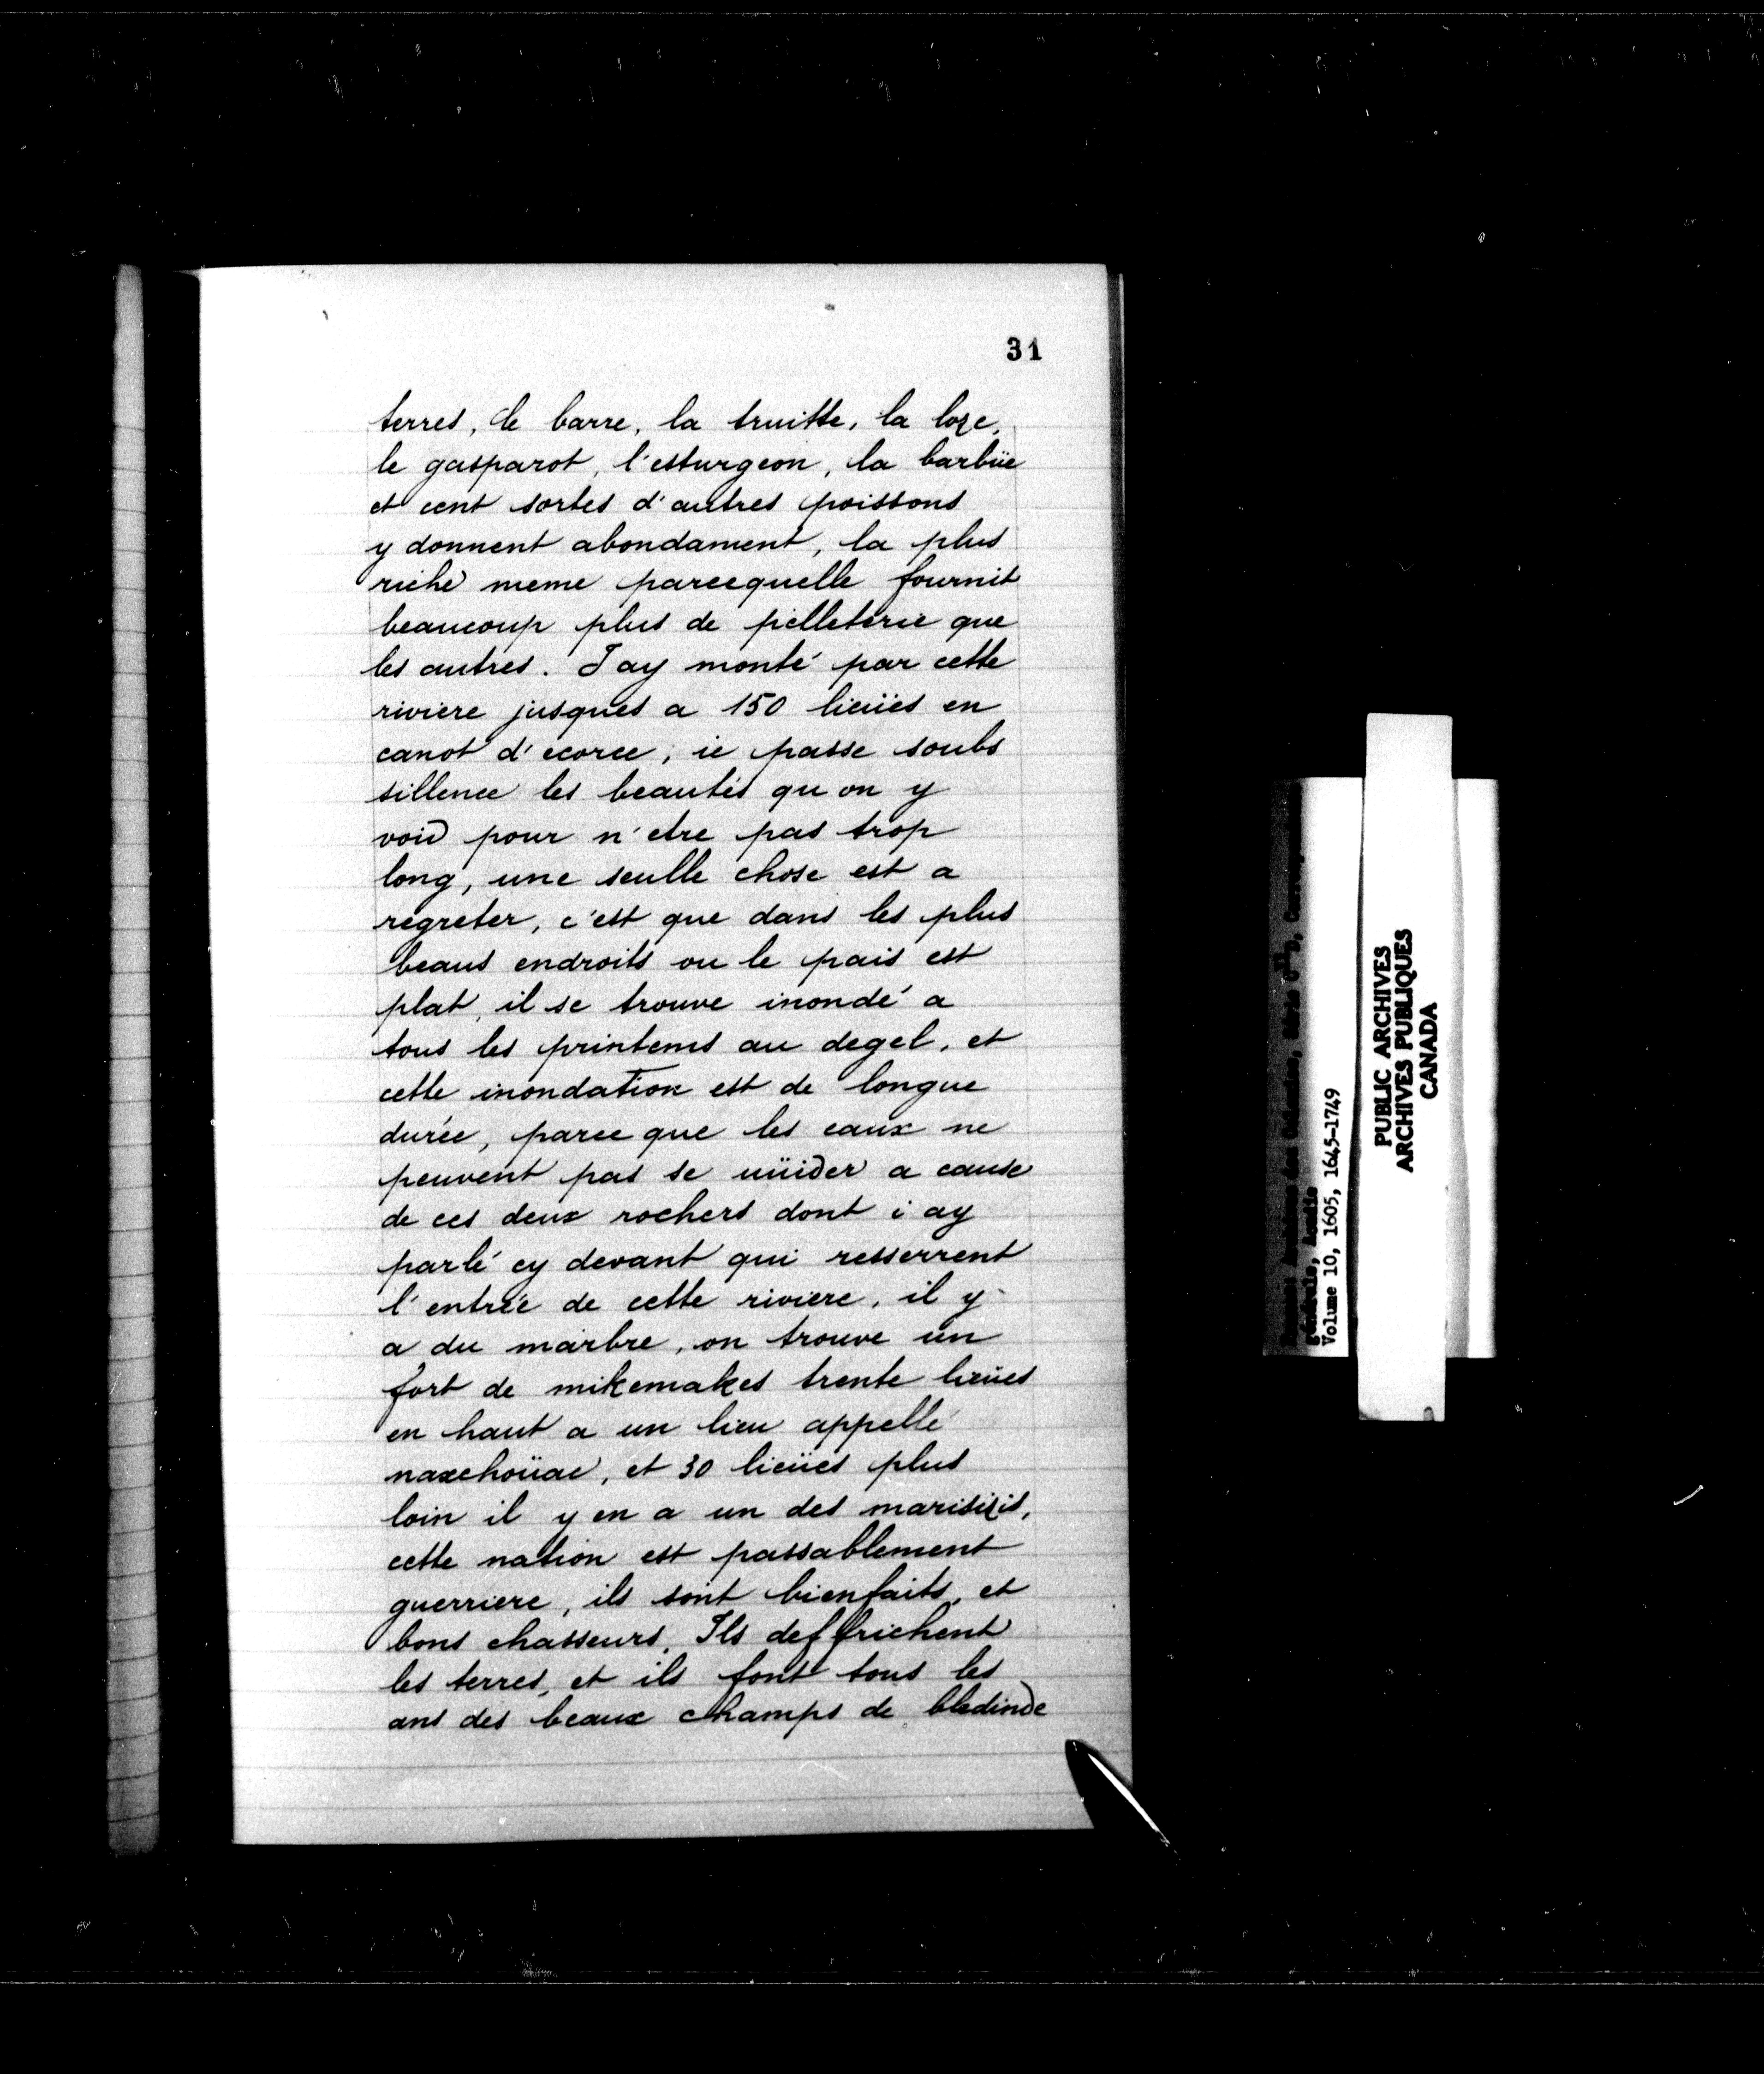 31
terres, le barre, la truitte, la loze,
le gasparot, l'esturgeon, la barbüe
et cent sortes d'autres poissons
y donnent abondament, la plus
riche meme parcequelle fournit
beaucoup plus de pelleterie que
les autres. Jay monté par cette
riviere jusques a 150 lieües en
canot d'ecorce, ie passe soubs
sillence les beautés qu on y
void pour n'etre pas trop
long, une seulle chose est a
regreter, c'est que dans les plus
beaus endroits ou le pais est
plat, il se trouve inondé a
tous les printems au degel, et
cette inondation est de longue
durée, parce que les eaux ne
peuvent pas se uüider a cause
de ces deux rochers dont i ay
parlé cy devant qui resserrent
l'entrée de cette riviere, il y
a du marbre, on trouve un
fort de mikemakes trente lieües
en haut a un lieu appellé
naxchoüac, et 30 lieües plus
loin il y en a un des marisizis,
cette nation est passablement
guerriere, ils sont bienfaits, et
bons chasseurs, Ils deffrichent
les terres, et ils font tous les
ans des beaux champs de bledinde
générale, Acadie
Volume 10, 1605, 1645-1749
PUBLIC ARCHIVES
ARCHIVES PUBLIQUES
CANADA